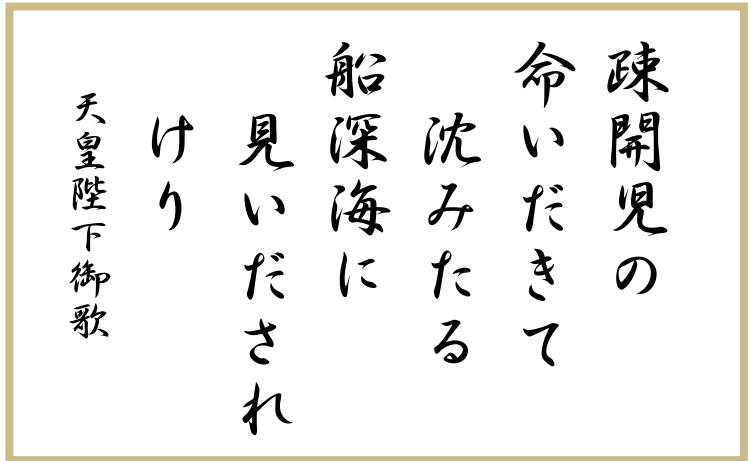 疎開児の
命いだきて
沈みたる
船深海に
見いだされ
けり
天皇陛下御歌